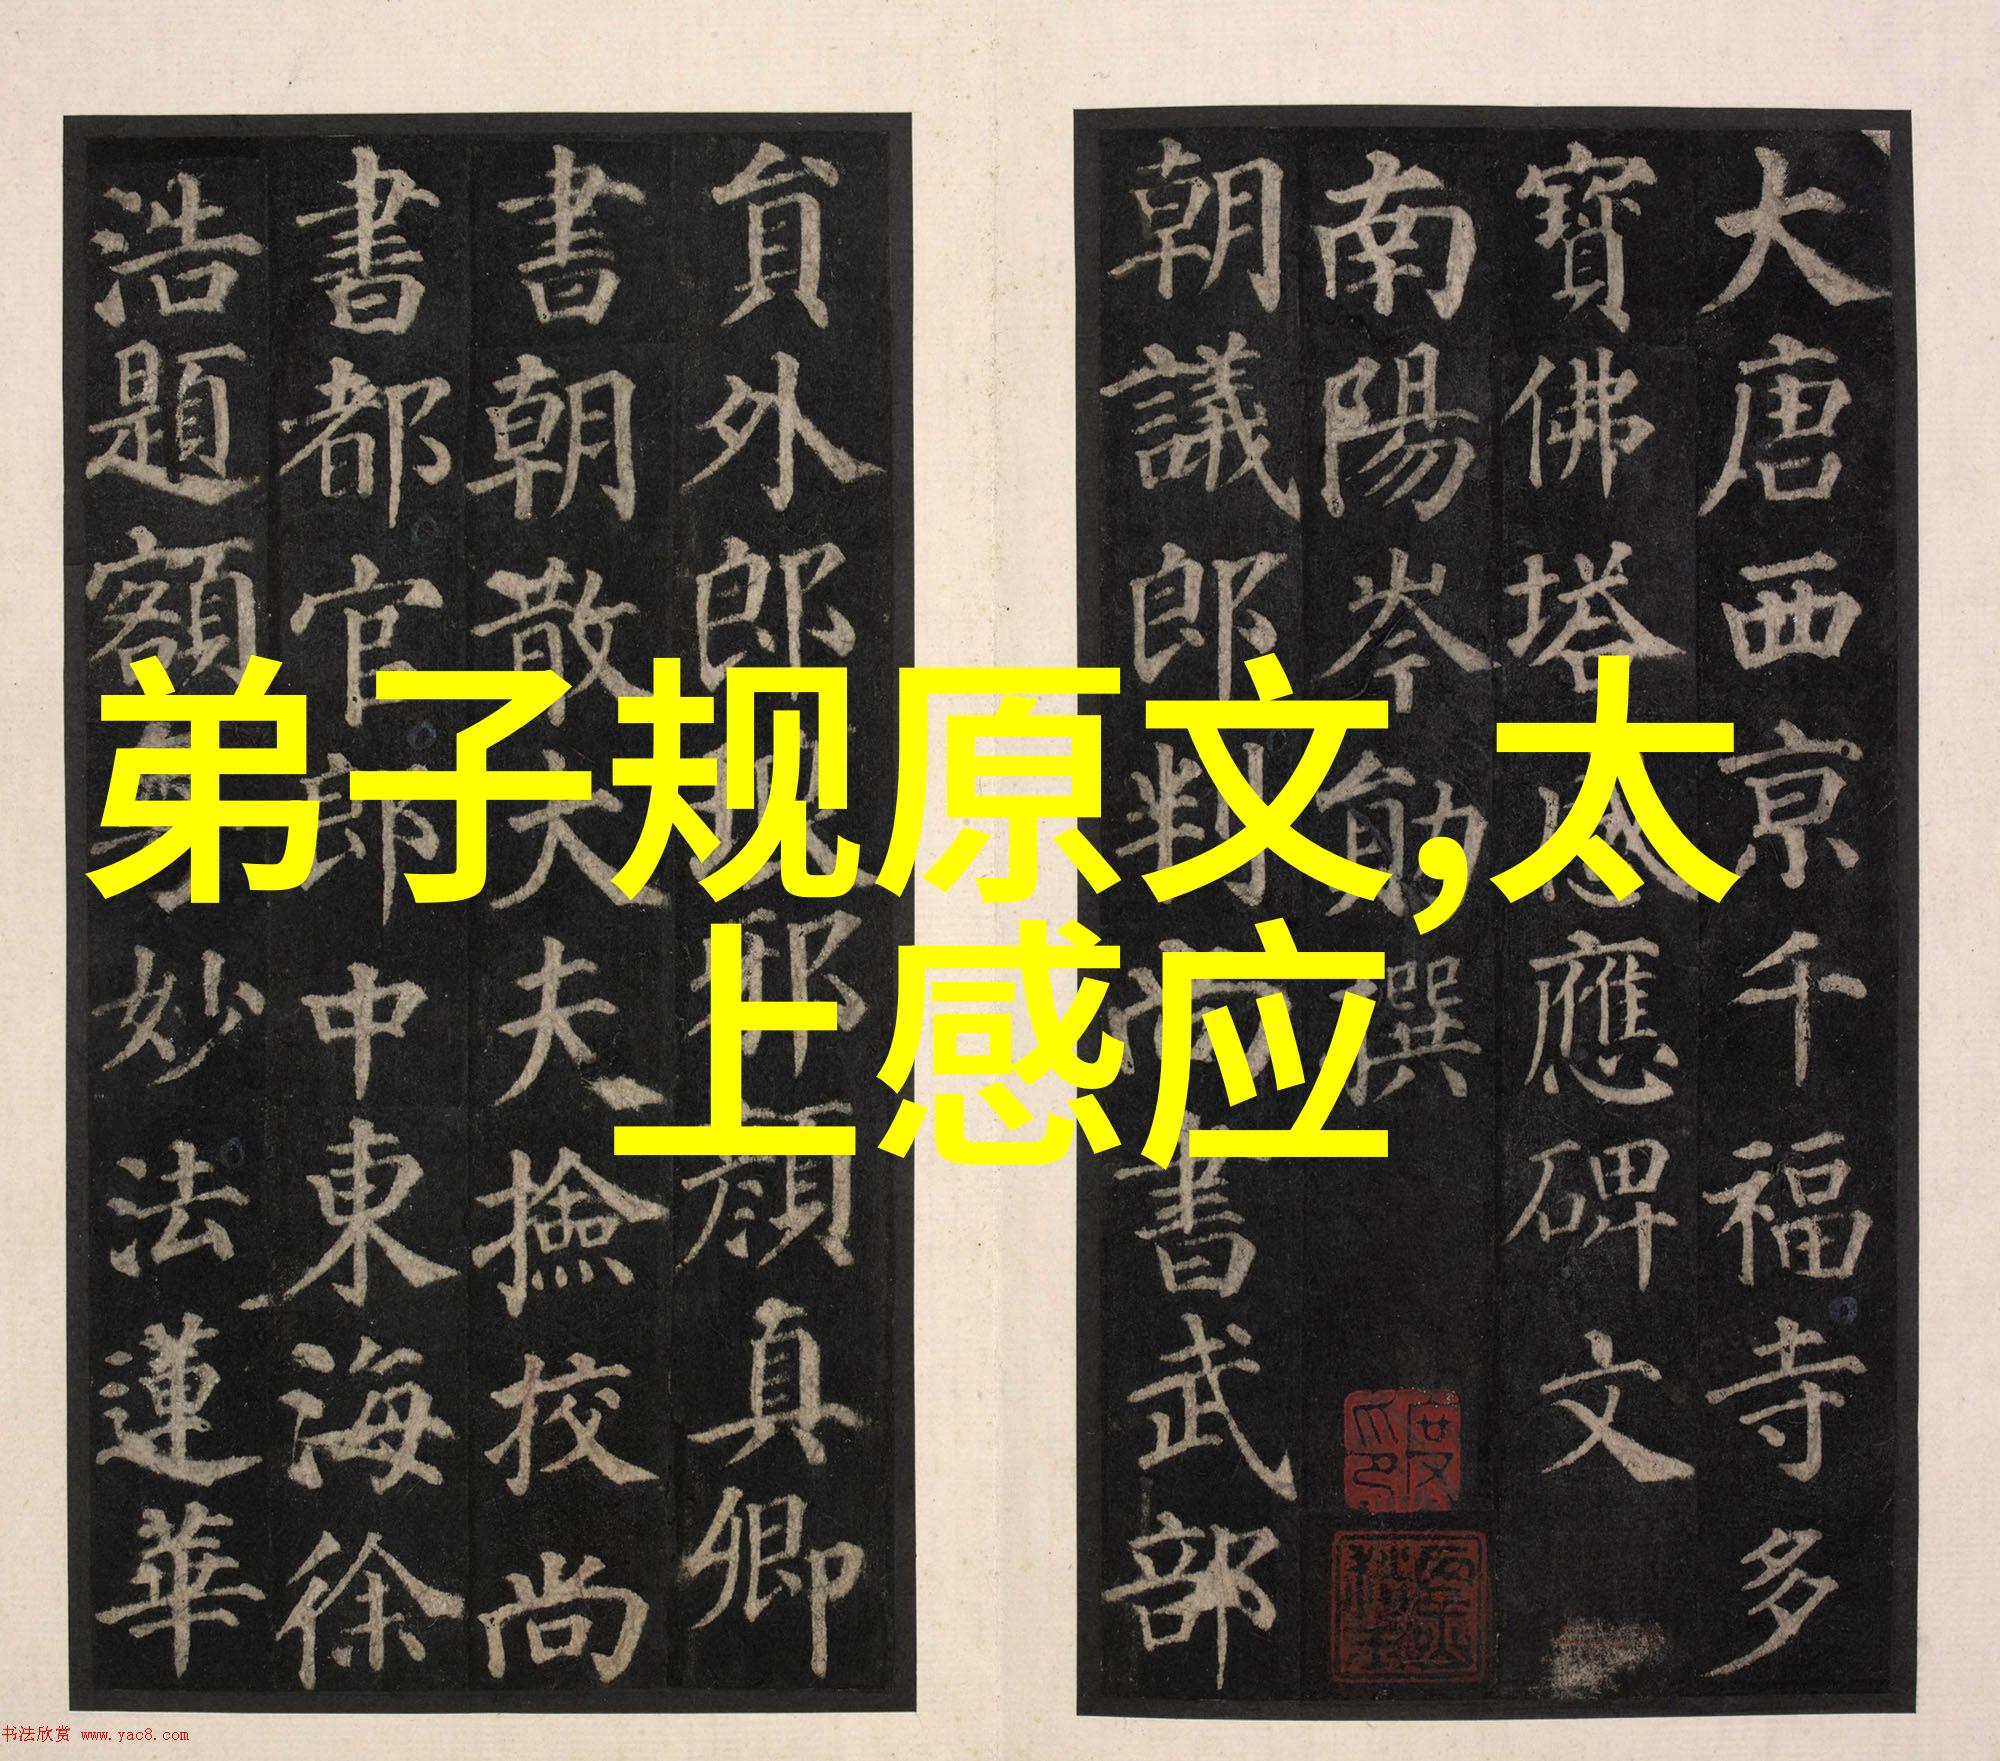 大唐西京千福寺多
寶佛塔感應碑文
南陽岑勛撰
朝議郎判尚書武部
負外郎琅邪顏真卿
書朝散大夫撿校尚
書都官郎中東海徐
浩題額
妙法蓮華
弟子规原文,太
上感应
书法欣赏 www.yac8.com